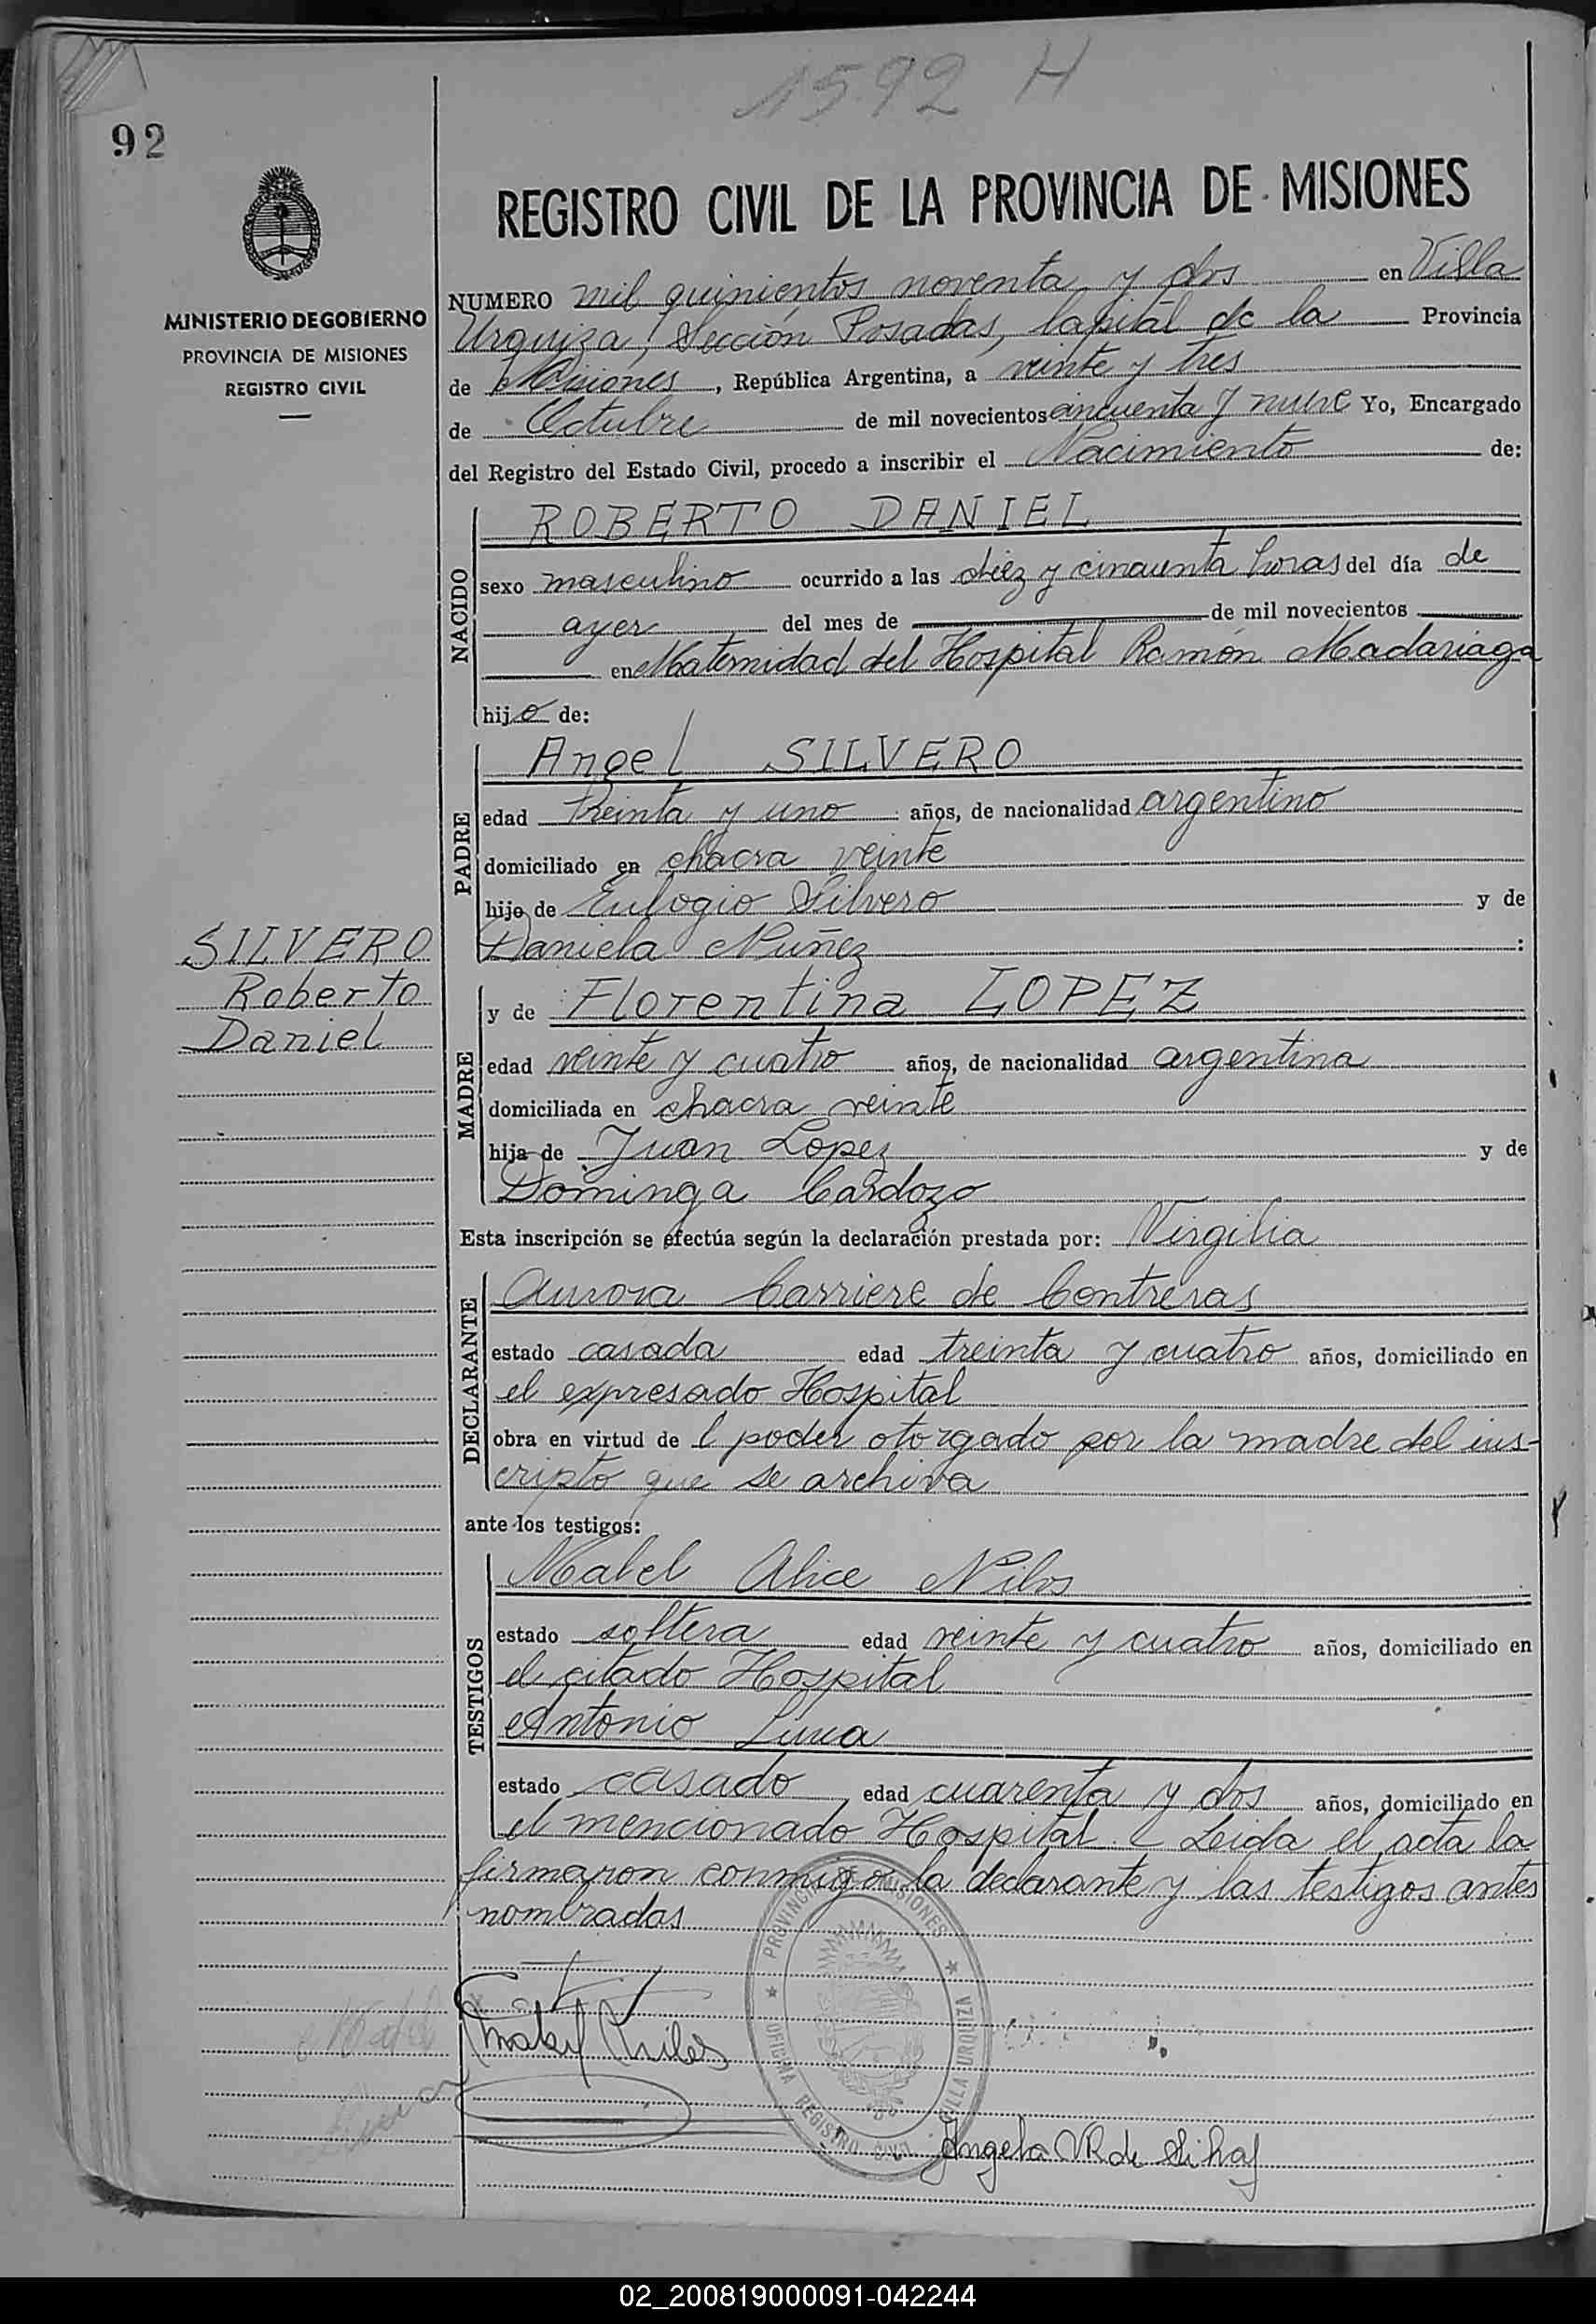 1592 H
92
REGISTRO CIVIL DE LA PROVINCIA DE MISIONES
MINISTERIO DE GOBIERNO
PROVINCIA DE MISIONES
REGISTRO CIVIL
NUMERO mil quinientos noventa y dos en Villa
Urquiza, Sección Posadas, Capital de la Provincia
de Misiones, República Argentina, a veinte y tres
de Octubre de mil novecientos cincuenta y nueve Yo, Encargado
del Registro del Estado Civil, procedo a inscribir el Nacimiento de:
NACIDO
ROBERTO DANIEL
sexo masculino ocurrido a las diez y cincuenta horas del día de
ayer del mes de de mil novecientos
en Maternidad del Hospital Ramón Madariaga
hijo de:
PADRE
Angel SILVERO
edad Treinta y uno años, de nacionalidad argentino
domiciliado en chacra veinte
hijo de Eulogio Silvero y de
Daniela Nuñez :
SILVERO
Roberto
Daniel
MADRE
y de Florentina LOPEZ
edad veinte y cuatro años, de nacionalidad argentina
domiciliada en chacra veinte
hija de Juan Lopez y de
Dominga Cardozo
Esta inscripción se efectúa según la declaración prestada por: Virgilia
DECLARANTE
Aurora Carriere de Contreras
estado casada edad treinta y cuatro años, domiciliado en
el expresado Hospital
obra en virtud de l poder otorgado por la madre del ins-
cripto que se archiva
ante los testigos:
TESTIGOS
Mabel Alice Nilos
estado soltera edad veinte y cuatro años, domiciliado en
el citado Hospital
Antonio Luna
estado casado edad cuarenta y dos años, domiciliado en
el mencionado Hospital. Leida el acta la
firmaron conmigo la declarante y las testigos antes
nombradas
PROVINCIA DE MISIONES
OFICINA REGISTRO CIVIL VILLA URQUIZA
Angela
02_200819000091-042244